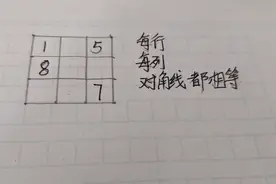 1 5
8
7
每行
每列
对角线都相等